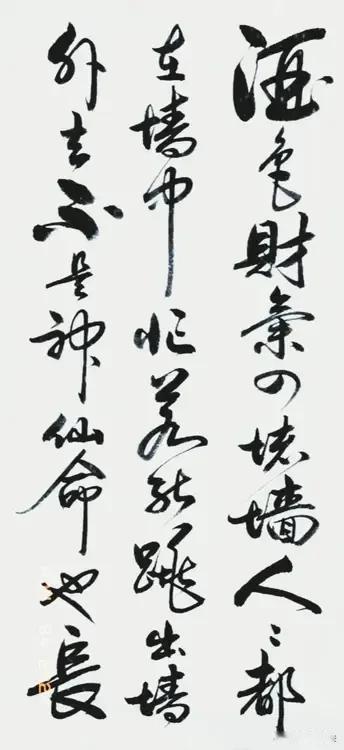 酒色財氣四堵墙人々都
在墙中忙若能跳出墙
外去不是神仙命也長